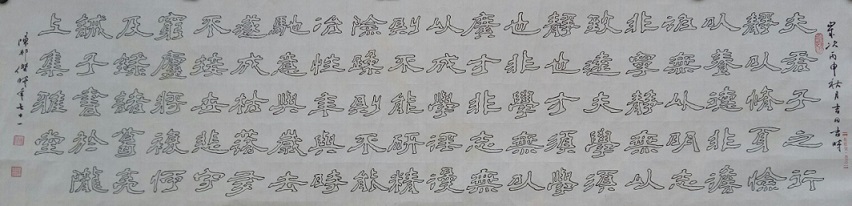 歲次丙申秋月書
夫君子之行
静以修身儉
以養德非澹
泊無以明志
非寧静無以
致遠夫學須
静也才須學
也非學無以
廣才非志無
以成學淫慢
則不能研精
險躁則不能
冶性年與時
馳意與歲去
遂成枯落多
不接世悲守
窮廬將復何
及録諸葛亮
誡子書於隴
上集雅堂
年七十一